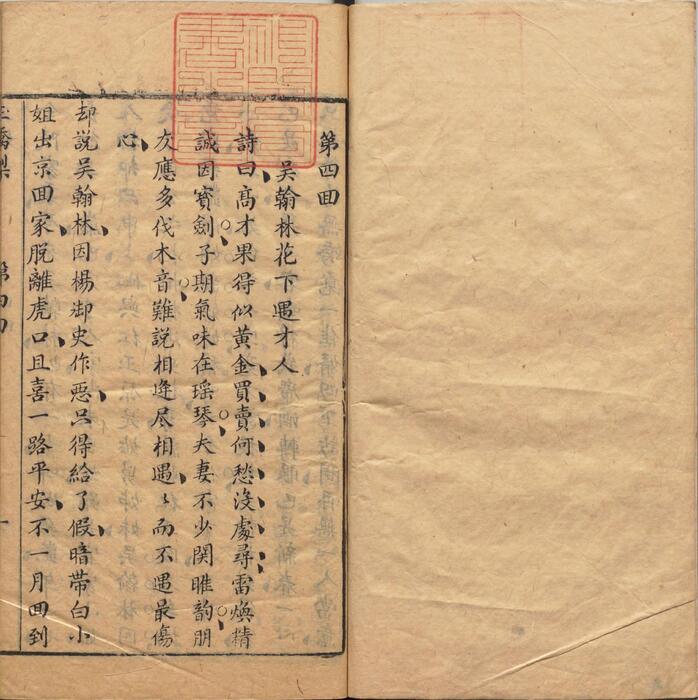 第四回
吳翰林花下遇才人
詩曰高才果得似黃金買賣何愁沒處尋雷煥精
誠因寳劍子期氣味在瑶琴夫妻不少関雎韵朋
友應多伐木音難說相逄尽相遇〻而不遇最傷
心
却說吳翰林因楊御史作惡只得給了假暗帶白小
姐出京回家脫離虎口且喜一路平安不一月回到
玉嬌梨 第四回 一